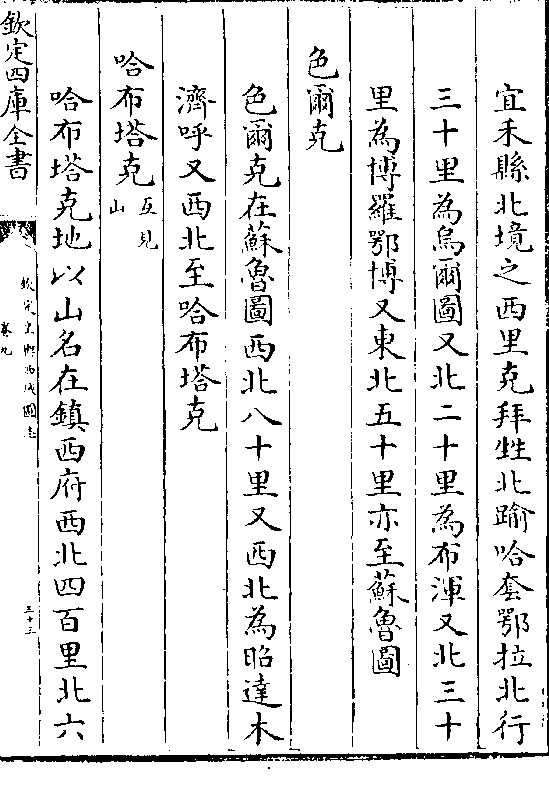 宜禾縣北境之西里克拜甡北踰哈套鄂拉北行
三十里為烏爾圖又北二十里為布渾又北三十
里為博羅鄂博又東北五十里亦至蘇魯圖
色爾克
色爾克在蘇魯圖西北八十里又西北為昭達木
濟呼又西北至哈布塔克
哈布塔克互見山
哈布塔克地以山名在鎮西府西北四百里北六
欽定四庫全書
欽定皇輿西域圖志
卷九
三十三